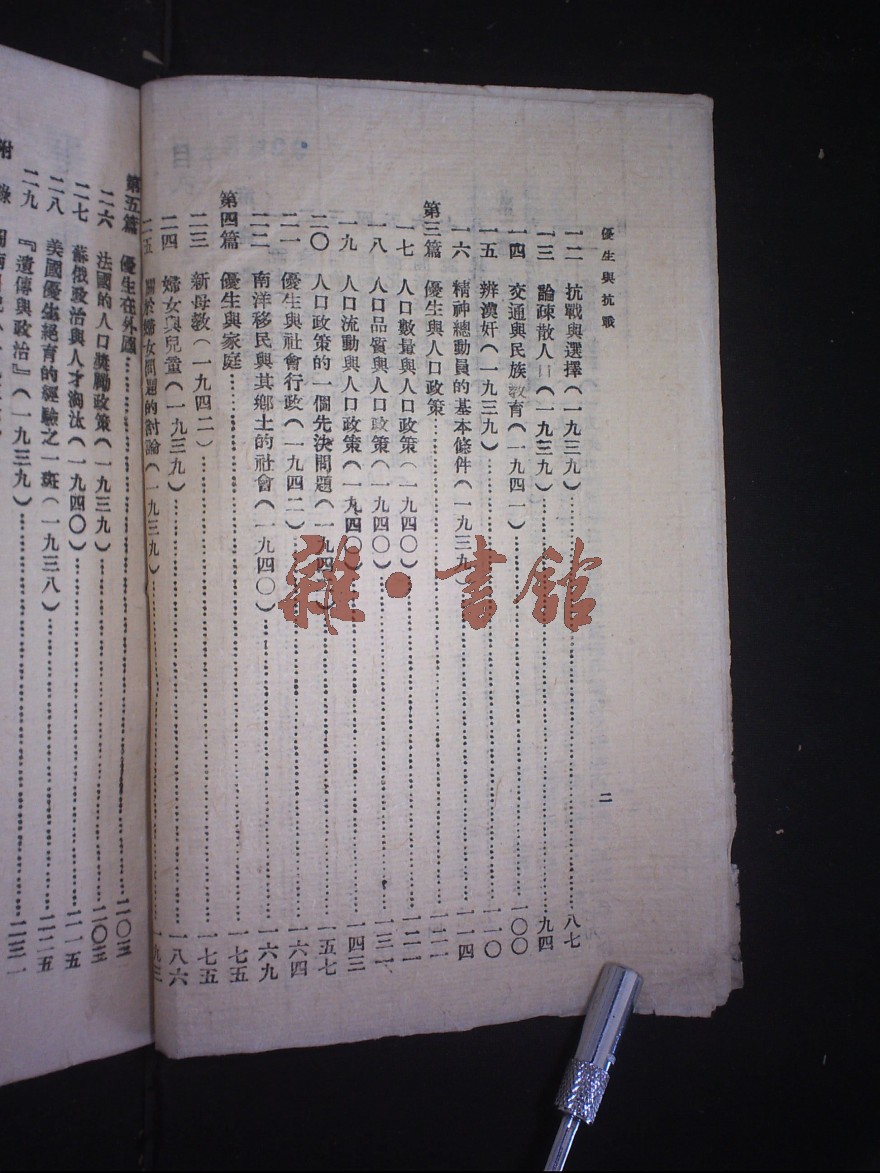 優生與抗戰
二
一二 抗戰與選擇(一九三九)……八七
一三 論疎散人口(一九三九)……九四
一四 交通與民族教育(一九四一)……一〇〇
一五 辨漢奸(一九三九)……一一〇
一六 精神總動員的基本條件(一九三九)……一一四
第三篇 優生與人口政策……一二一
一七 人口數量與人口政策(一九四〇)……一二一
一八 人口品質與人口政策(一九四〇)……一三一
一九 人口流動與人口政策(一九四〇)……一四三
二〇 人口政策的一個先決問題(一九四)……一五七
二一 優生與社會行政(一九四二)……一六四
二二 南洋移民與其鄉土的社會(一九四〇)……一六九
第四篇 優生與家庭……一七五
二三 新母教(一九四二)……一七五
二四 婦女與兒童(一九三九)……一八六
二五 關於婦女問題的討論(一九三九)……一九三
第五篇 優生在外國……二〇三
二六 法國的人口獎勵政策(一九三九)……二〇三
二七 蘇俄政治與人才淘汰(一九四〇)……二一五
二八 美國優生絕育的經驗之一斑(一九三八)……二二五
二九 『遺傳與政治』(一九三九)……二三一
附錄
雜·書館